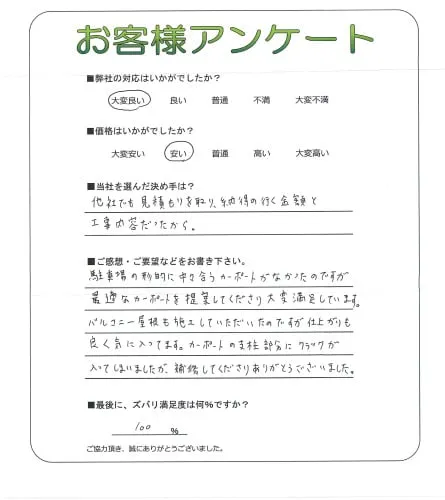 お客様アンケート
■弊社の対応はいかがでしたか?
大変良い 良い 普通 不満 大変不満
■価格はいかがでしたか?
大変安い 安い 普通 高い 大変高い
■当社を選んだ決め手は?
他社でも見積もりを取り、納得の行く金額と
工事内容だったから。
■ご感想・ご要望などをお書き下さい。
駐車場の形的に中々合うカーポートがなかったのですが
最適なカーポートを提案してくださり大変満足しています。
バルコニー屋根も施工していただいたのですが仕上がりも
良く気に入ってます。カーポートの支柱部分にクラックが
入ってしまいましたが、補修してくださりありがとうございました。
■最後に、ズバリ満足度は何%ですか?
100 %
ご協力頂き、誠にありがとうございました。